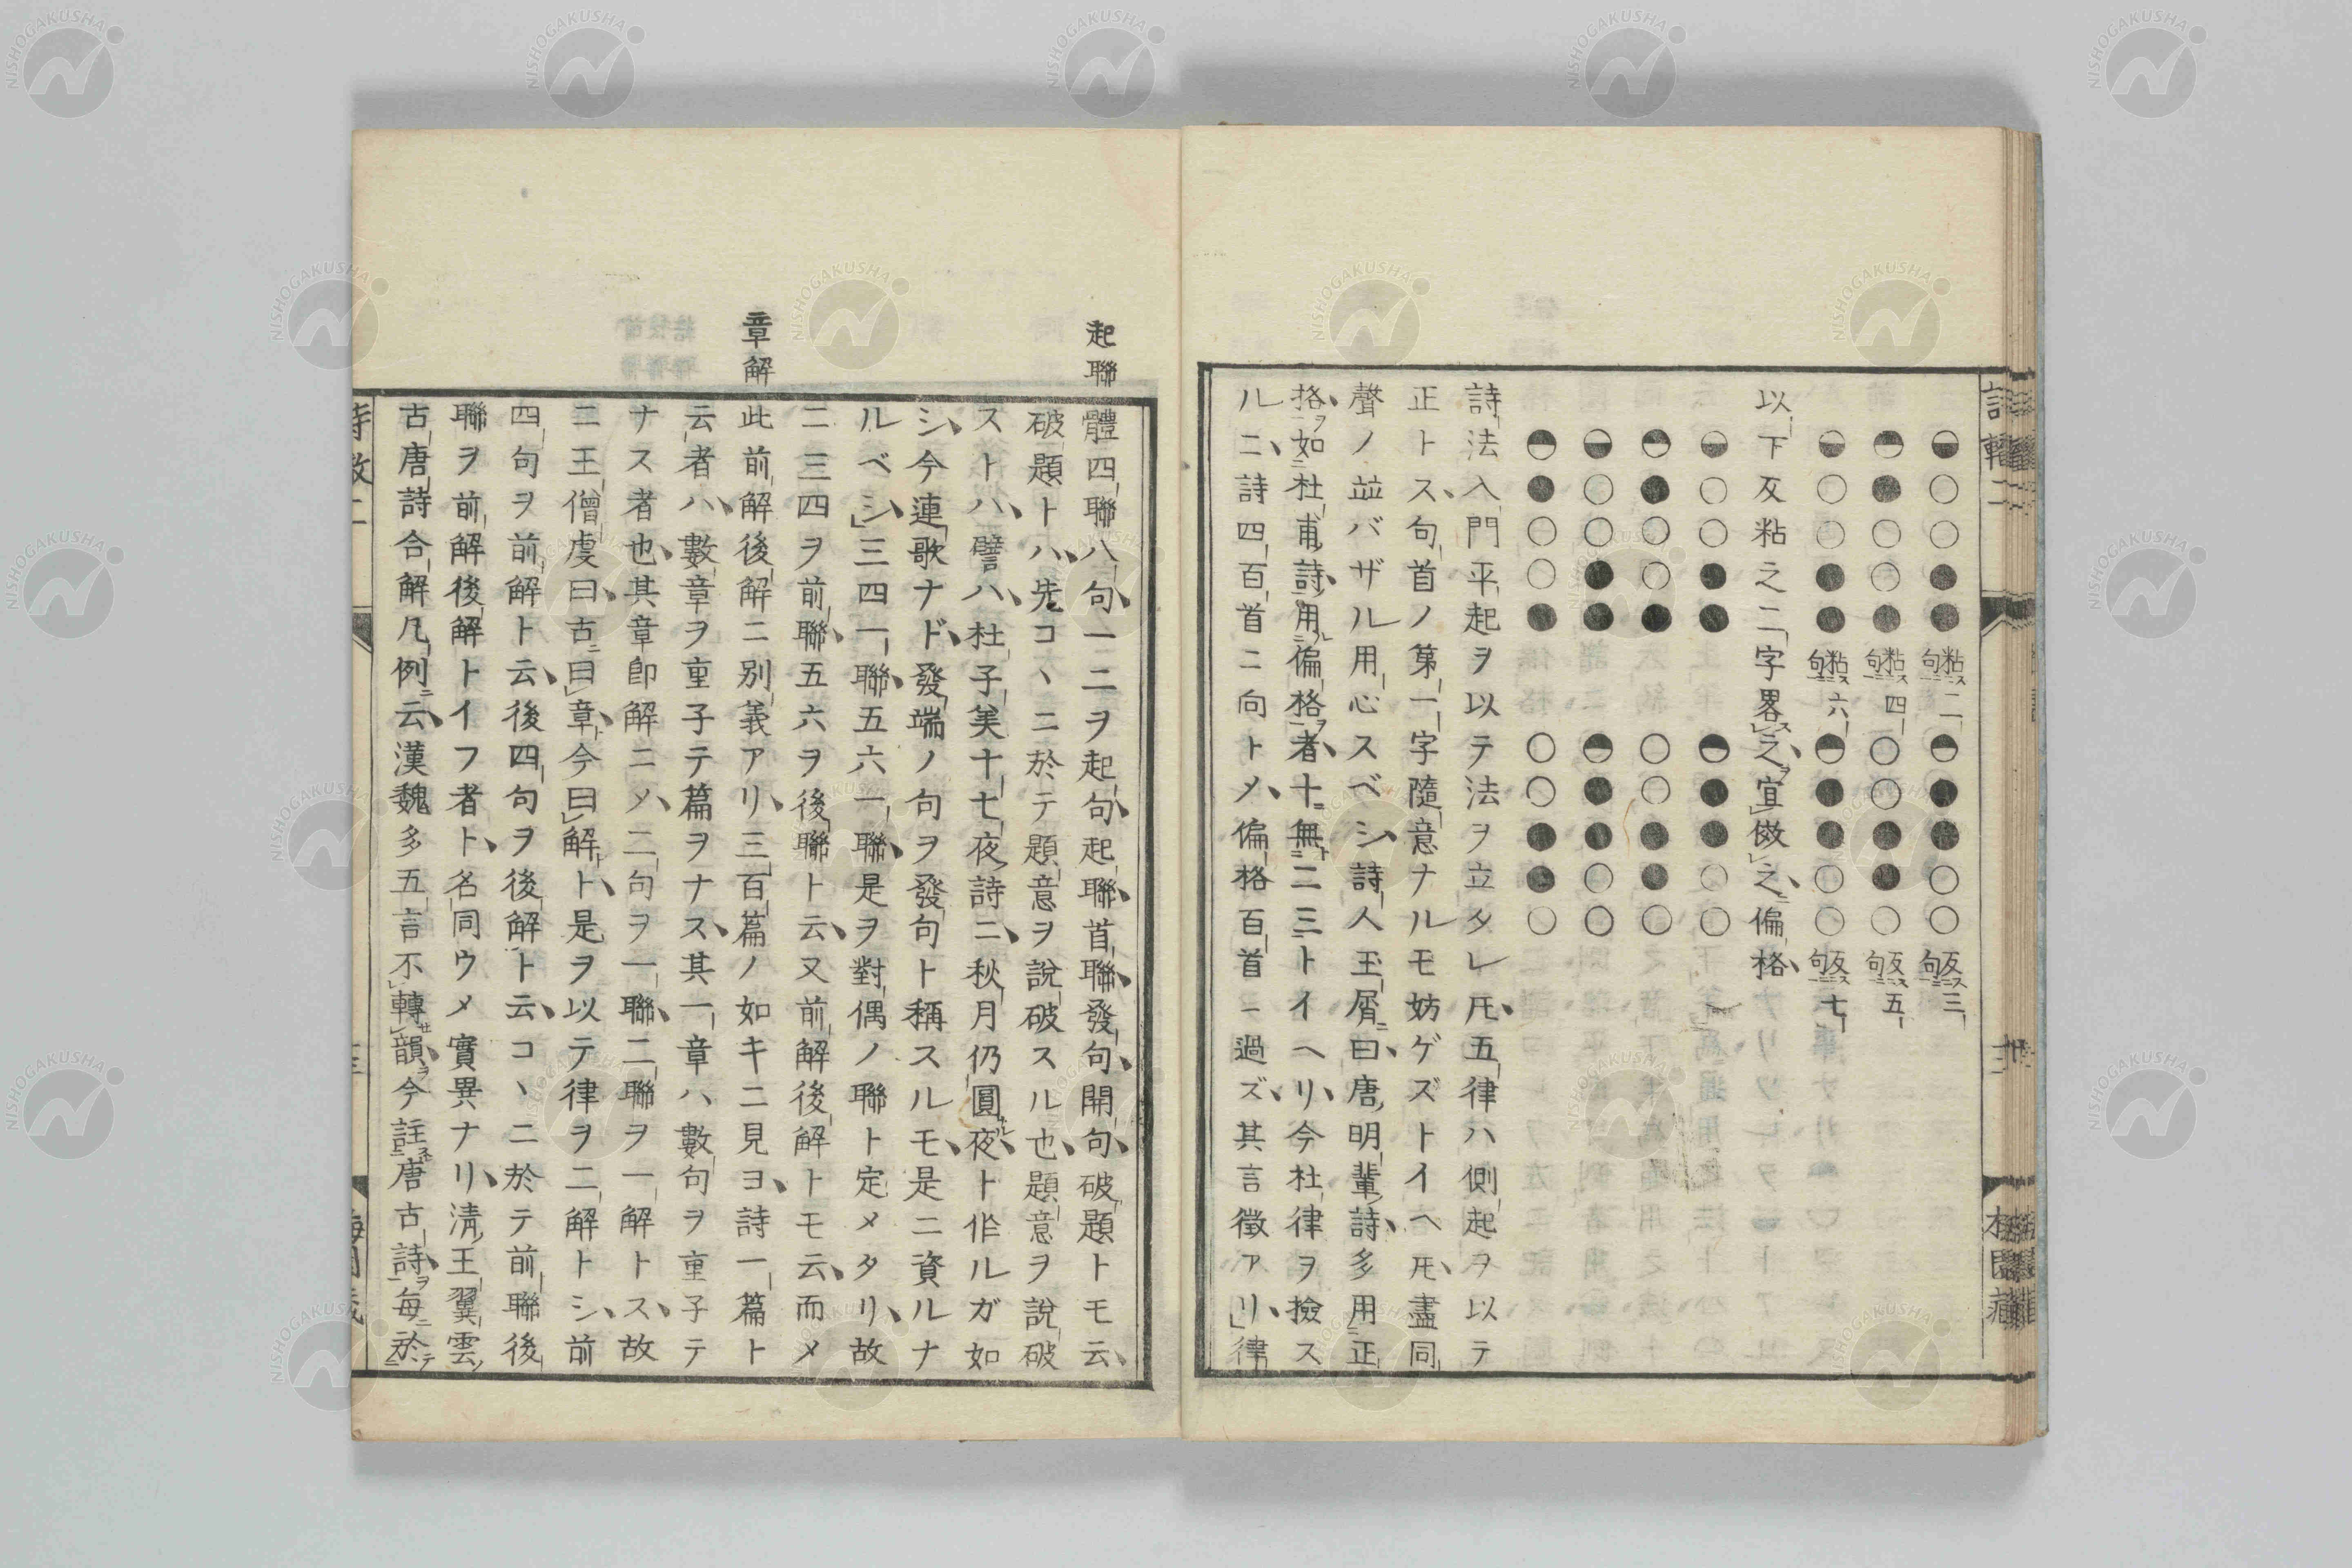 ◒○○●● 粘句ニス二 ◓●●○○ 反句ニス三
◓●○○● 粘句ニス四 ○○●●○ 反句ニス五
◒○○●● 粘句ニス六 ◓●●○○ 反句ニス七
以下反粘之二字畧之宜倣之偏格
◒○○●● ◓●●○○
◓●○○● ○○●●○
◒○○●● ◓●●○○
◓●○○● ○○●●○
詩法入門平起ヲ以テ法ヲ立タレ𪜈五律ハ側起ヲ以テ
正トス句首ノ第一字隨意ナルモ妨ゲズトイヘ𪜈盡同
聲ノ竝バザル用心スベシ詩人玉屑曰唐明輩詩多用正
格如杜甫詩用偏格者十無二三トイヘリ今杜律ヲ撿ス
ルニ詩四百首ニ向トメ偏格百首ニ過ズ其言徵アリ律
起聯
體四聯八句一二ヲ起句起聯首聯發句開句破題トモ云
破題トハ先コヽニ於テ題意ヲ說破スル也題意ヲ說破
ストハ譬ハ杜子美十七夜詩ニ秋月仍圓夜ト作ルガ如
シ今連歌ナド發端ノ句ヲ發句ト稱スルモ是ニ資ルナ
ルベシ三四一聯五六一聯是ヲ對偶ノ聯ト定メタリ故
ニ三四ヲ前聯五六ヲ後聯ト云又前解後解トモ云而メ
章解
此前解後解ニ別義アリ三百篇ノ如キニ見ヨ詩一篇ト
云者ハ數章ヲ重子テ篇ヲナス其一章ハ數句ヲ重子テ
ナス者也其章卽解ニメ二句ヲ一聯二聯ヲ一解トス故
ニ王僧虔曰古曰章今曰解ト是ヲ以テ律ヲ二解トシ前
四句ヲ前解ト云後四句ヲ後解ト云コヽニ於テ前聯後
聯ヲ前解後解トイフ者ト名同ウメ實異ナリ淸王翼雲
古唐詩合解凡例云漢魏多五言不轉韻今註唐古詩每於